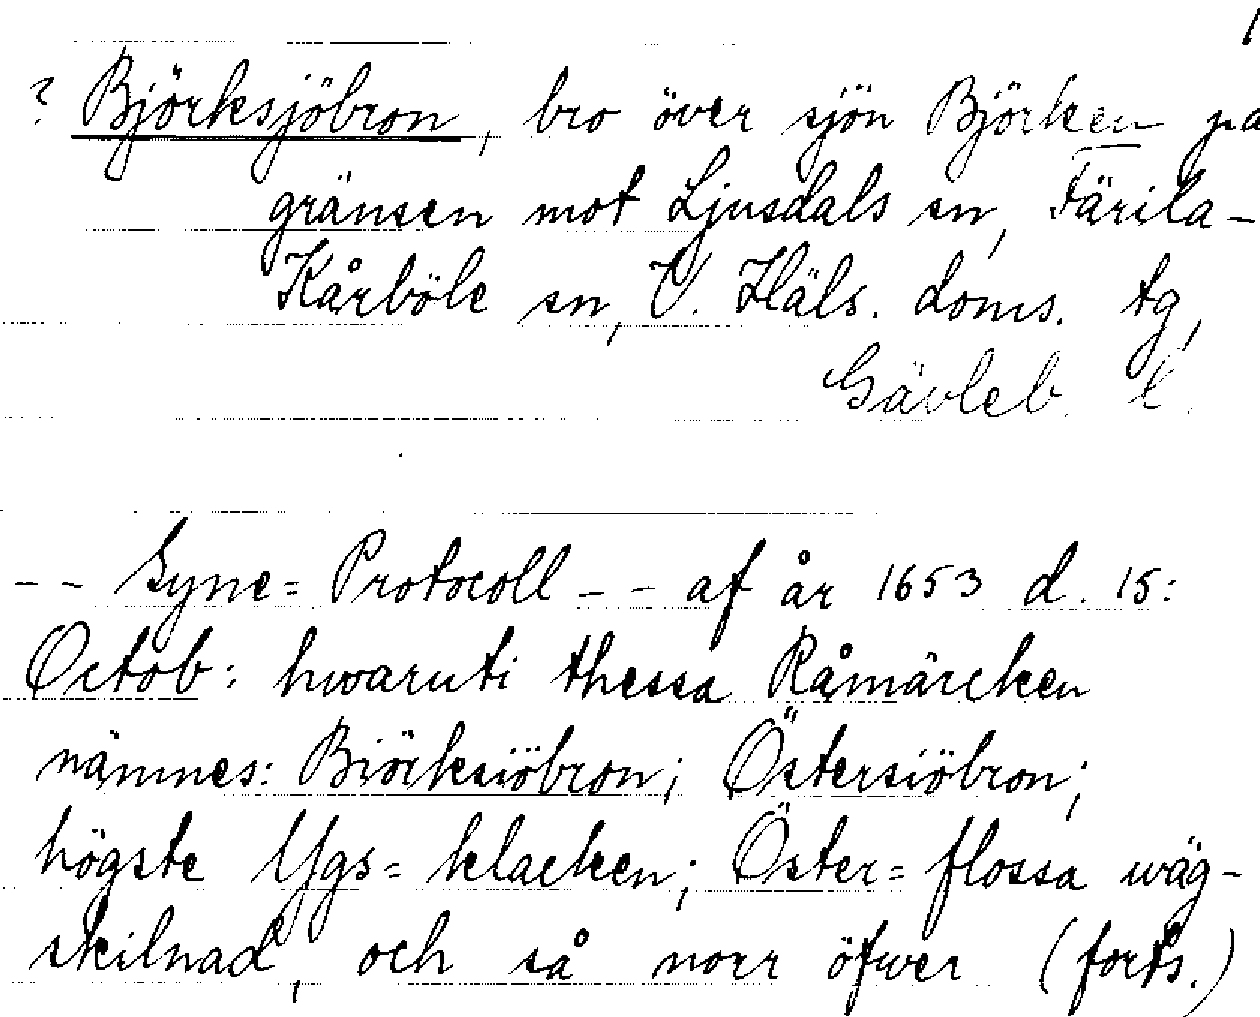 1
? Björksjöbron, bro över sjön Björken på
gränsen mot Ljusdals sn, Färila-
Kårböle sn, V. Häls. doms. tg,
Gävleb. l.
-- Syne= Protocoll -- af år 1653 d. 15:
Octob: hwaruti thessa Råmärcken
nämnes: Biörksiöbron; Östersiöbron;
högste Ygs= klacken; Öster= flossa wäg-
skilnad, och så norr öfwer (forts.)